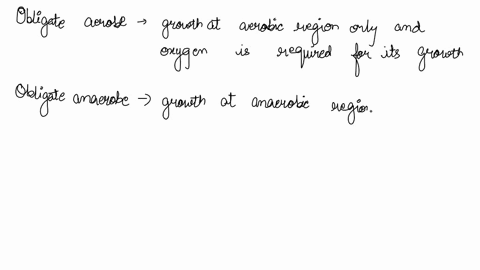 Obligate aerobe → growth at aerobic region only and
oxygen is required for its growth
Obligate anaerobe → growth at anaerobic region.